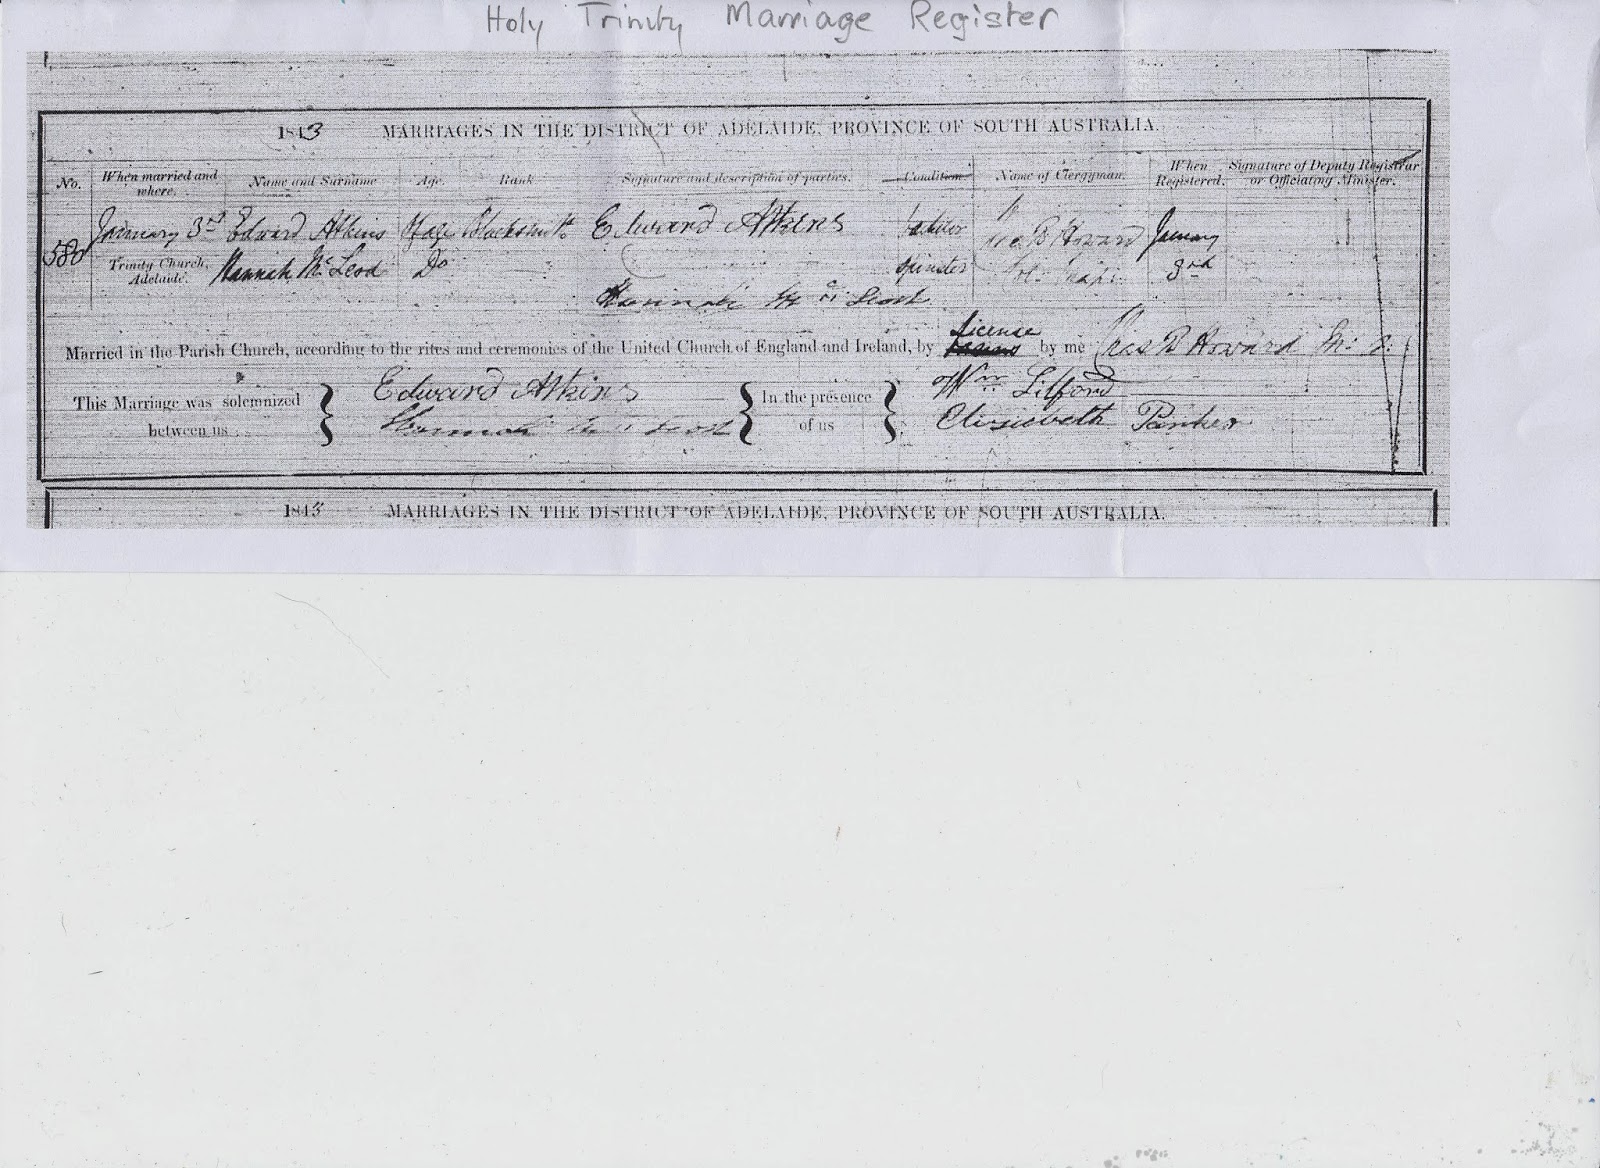 Holy Trinity Marriage Register
1843 MARRIAGES IN THE DISTRICT OF ADELAIDE, PROVINCE OF SOUTH AUSTRALIA.
No. When married and where. Name and Surname Age. Rank Signature and description of parties. Condition Name of Clergyman. When Registered. Signature of Deputy Registrar or Officiating Minister.
580 January 3rd Edward Atkins Of age Blacksmith Edward Atkins batchelor Howard January
Trinity Church, Adelaide. Hannah McLeod Do spinster 3rd
Hannah McLeod
Married in the Parish Church, according to the rites and ceremonies of the United Church of England and Ireland, by License by me Chas B Howard
This Marriage was solemnized between us Edward Atkins In the presence of us Wm Lilford
Hannah McLeod Elizabeth Parker
1843 MARRIAGES IN THE DISTRICT OF ADELAIDE, PROVINCE OF SOUTH AUSTRALIA.